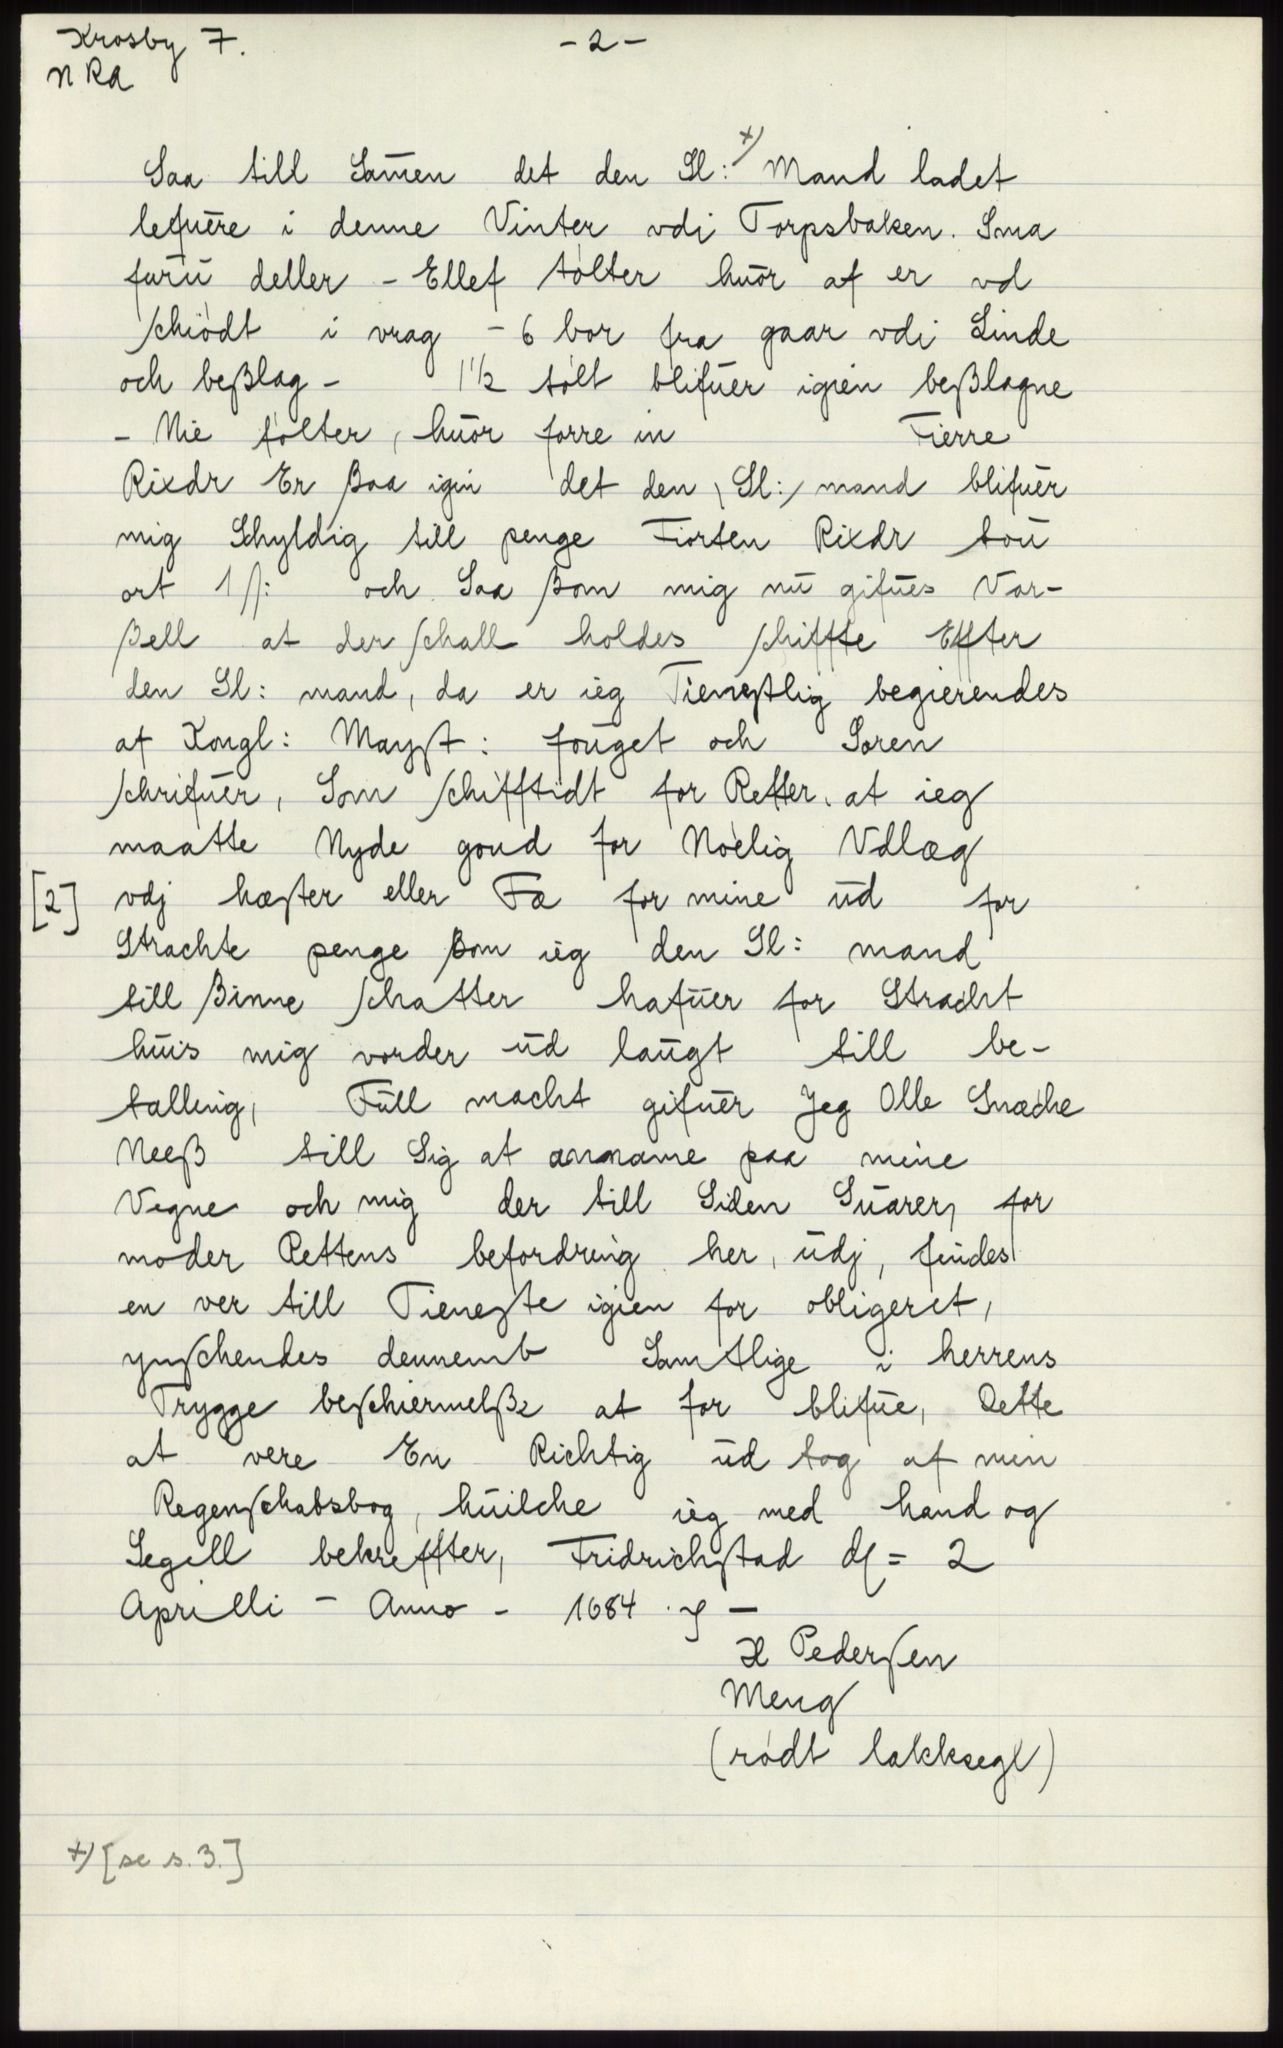 Krosby 7.
- 2 -
N RA
Saa till Samen det den Sl: x) Mand ladet
lefuere i denne Vinter vdi Torpsbaken. Sma
furu deller - Ellef tolter huor af er vd
schiødt i vrag - 6 bor fra gaar vdi Linde
och beßlag - 1½ tolt blifuer igien beßlagne
- Nie tolter, huor forre in Fierre
Rixdr Er ßaa igin det den, Sl:, mand blifuer
mig Schyldig till penge Fiorten Rixdr tou
ort 1 ß: och Saa ßom mig nu gifues Var-
ßell at der schall holdes schiffte Effter
den Sl: mand, da er ieg Tienstlig begierendes
af Kongl: Mayst: fouget och Soren
schrifuer, Som schifftidt for Retter, at ieg
maatte Nyde goud for Nøelig Vdlæg
[2] vdj hæster eller Fæ for mine ud for
Strachte penge ßom ieg den Sl: mand
till ßinne schatter hafuer for Stracht
huis mig vorder ud laugt till be-
talling, Full macht gifuer Jeg Olle Snæche
Neeß till Sig at anname paa mine
Vegne och mig der till Siden Suarer, for
moder Rettens befordring her, udj, findes
en ver till Tieneste igien for obligeret,
ynschendes dennemb Samtlige i herrens
Trygge beschiermelße at for blifue, Dette
at vere En Richtig ud tog af min
Regenschabsbog, huilche ieg med hand og
Segell bekreffter, Fridrichstad d = 2
Aprilli - Anno - 1684
H Pedersen
Meng
(rødt lakksegl)
x) [se s. 3.]